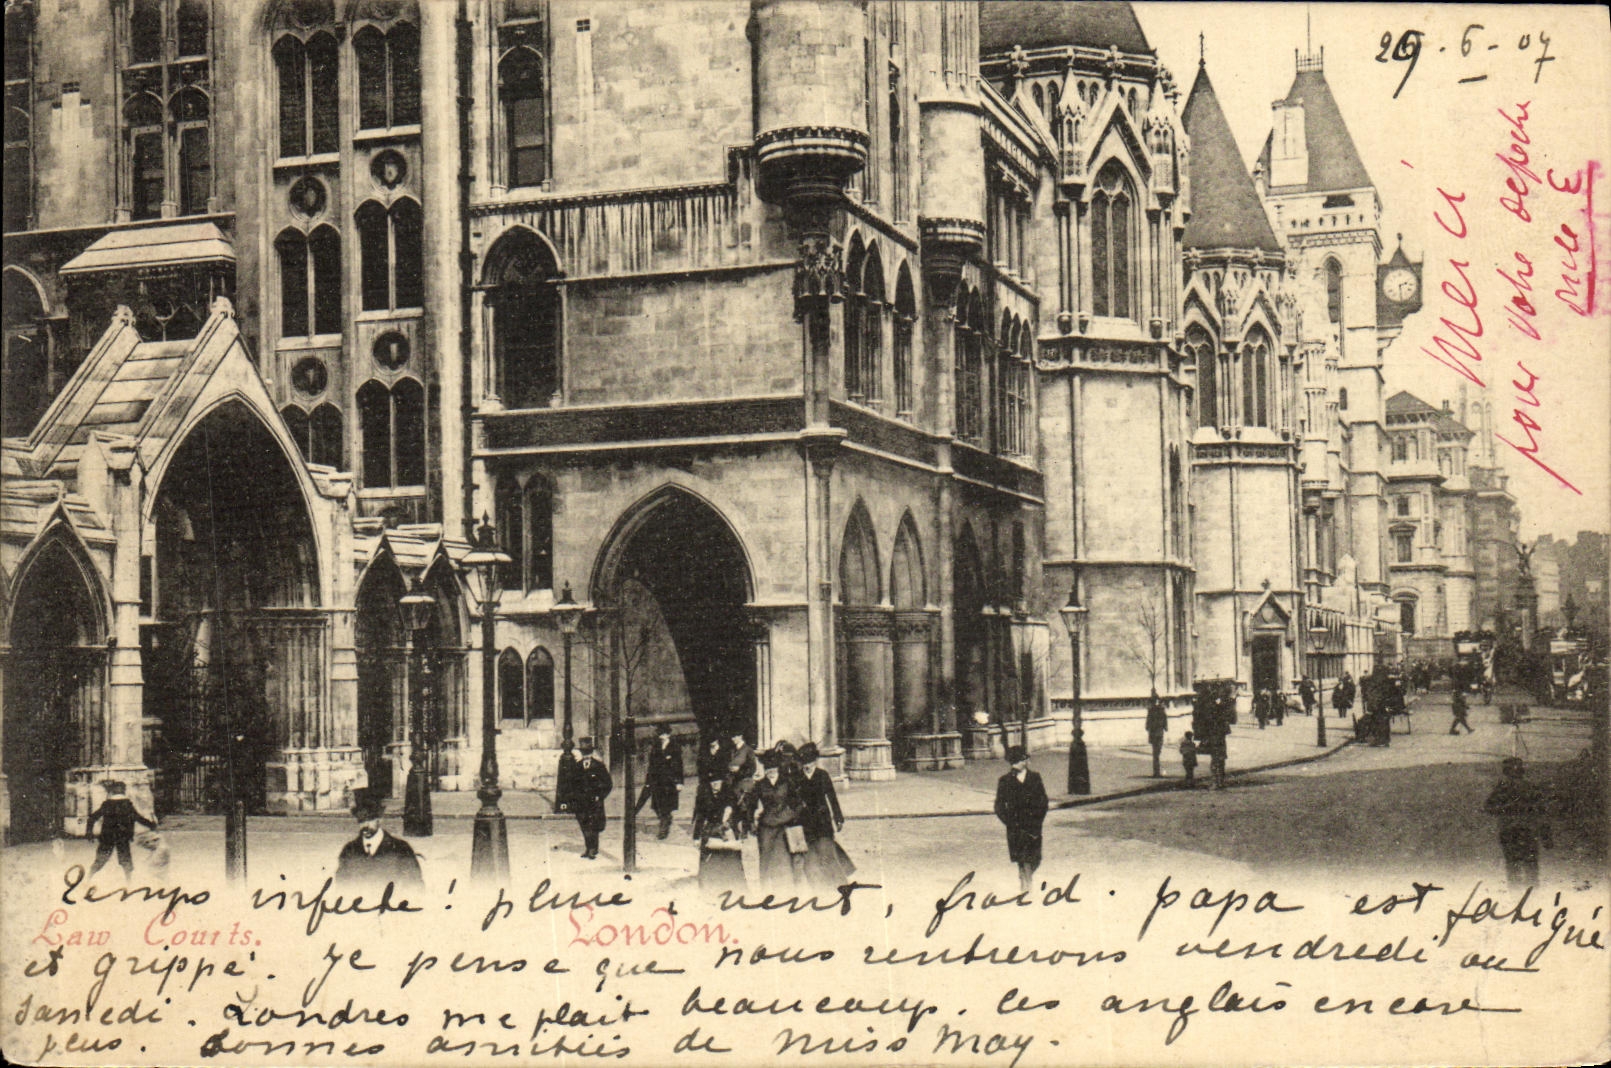 26 - 6 - 07
Merci
pour votre depeche
Mlle E
Temps infecte ! pluie, vent, froid. papa est fatigué
Law Courts. London.
et grippé. Je pense que nous rentrerons vendredi ou
Samedi. Londres me plait beaucoup. les anglais encore
plus. bonnes amitiés de Miss May.